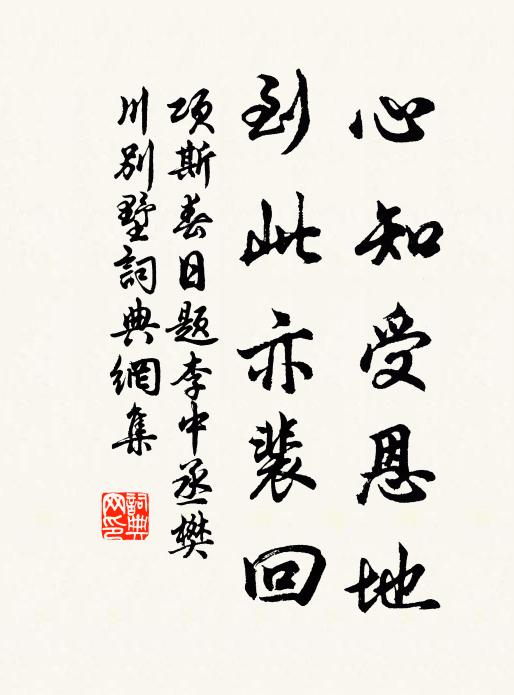 心知受恩地
到此亦裴回
項斯春日題李中丞樊
川別墅詞典網集
詞典
网印